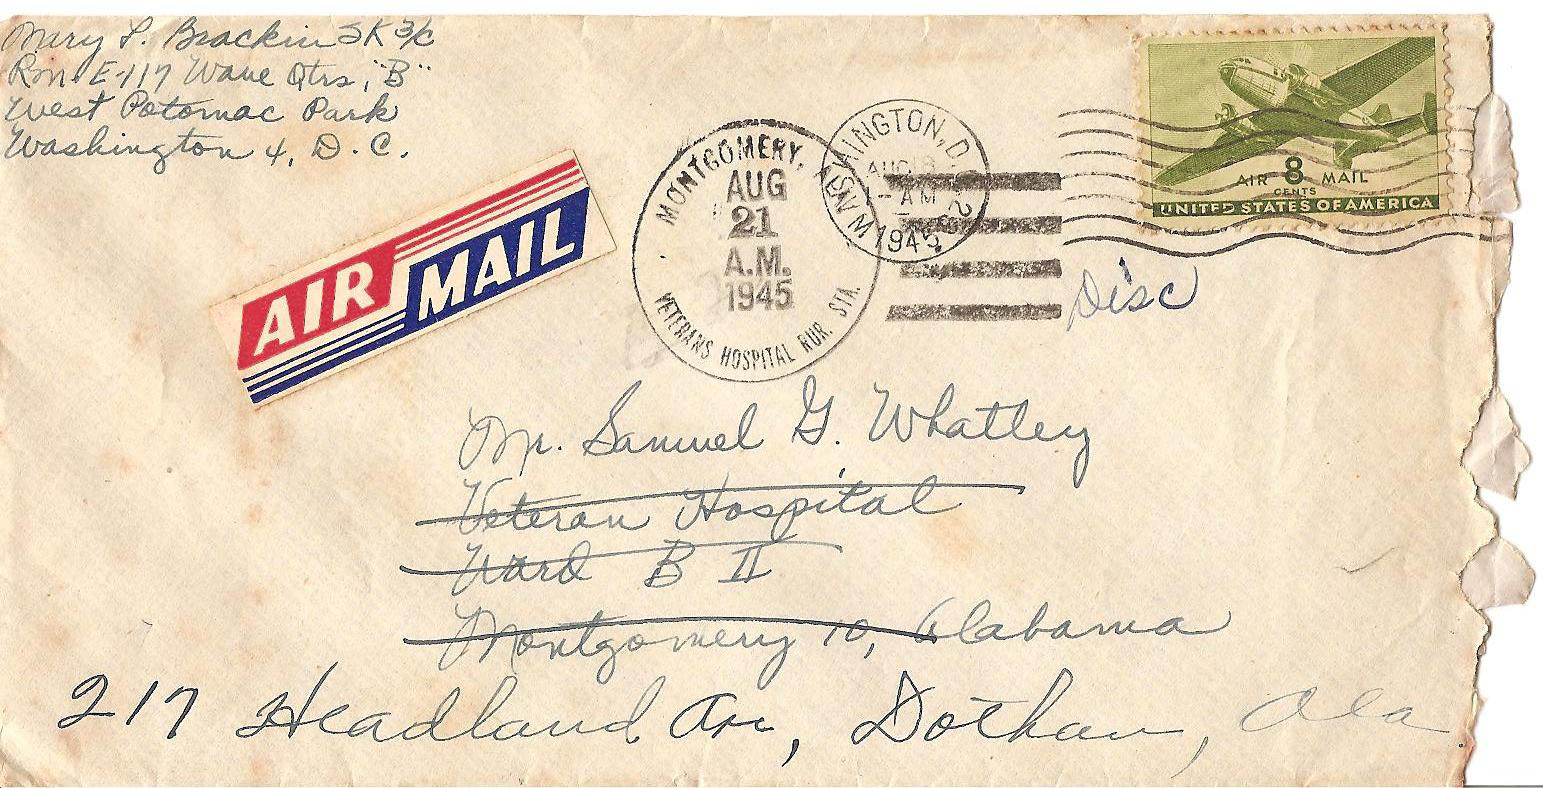 Mary L. Brackin SK 3/c
Rm. E-117 Wave Qtrs, "B"
West Potomac Park
Washington 4, D.C.
AIR MAIL
MONTGOMERY,
AUG
21
A.M.
1945
VETERANS HOSPITAL RUR. STA.
INGTON, D.
AUG
AM
1945
AIR 8 MAIL
CENTS
UNITED STATES OF AMERICA
Disc
Mr. Samuel G. Whatley
Veteran Hospital
Ward B II
Montgomery 10, Alabama
217 Headland Av, Dothan, Ala